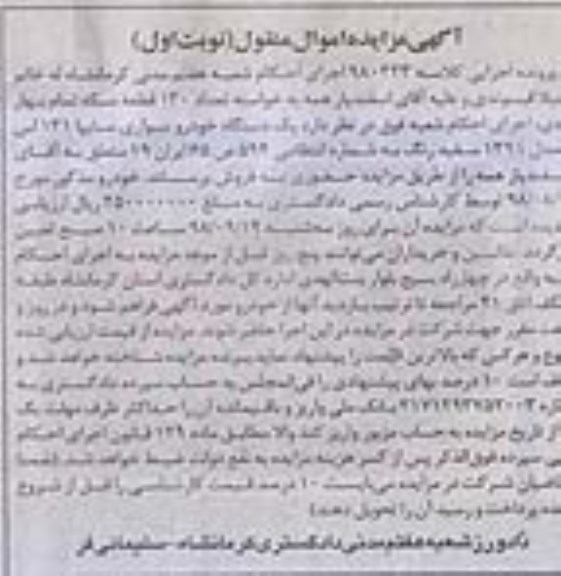 آگهی مزایده اموال منقول (نوبت اول)
پرونده اجرایی کلاسه ۹۸۰۳۲۳ اجرای احکام شعبه هفتم مدنی کرمانشاه له خانم
و علیه آقای اسفندیار همه به خواسته تعداد ۱۳۰ قطعه سکه تمام بهار
اجرای احکام شعبه فوق در نظر دارد یک دستگاه خودرو سواری سایپا ۱۳۱ اس
مدل ۱۳۹۱ سفید رنگ به شماره انتظامی ۵۹۴ ص ۶۵ ایران ۱۹ متعلق به آقای
همه را از طریق مزایده حضوری به فروش برساند خودرو مذکور مورخ
توسط کارشناس رسمی دادگستری به مبلغ ۲۵۰۰۰۰۰۰۰ ریال ارزیابی
است که مزایده آن برای روز سه‌شنبه ۹۸/۰۹/۱۲ ساعت ۱۰ صبح تعیین
و خریداران می‌توانند پنج روز قبل از موعد مزایده به اجرای احکام
واقع در چهارراه بسیج بلوار اداره کل دادگستری استان کرمانشاه طبقه
اتاق ۳۱ مراجعه تا ترتیب بازدید آنها از خودرو مورد آگهی فراهم شود و در روز و
مقرر جهت شرکت در مزایده در این اجرا حاضر شوند مزایده از قیمت ارزیابی شده
و هر کس که بالاترین قیمت را پیشنهاد نماید برنده مزایده شناخته خواهد شد و
است ۱۰ درصد بهای پیشنهادی را فی‌المجلس به حساب سپرده دادگستری به
بانک ملی واریز و باقیمانده آن را حداکثر ظرف مهلت یک
از تاریخ مزایده به حساب مزبور واریز کند والا مطابق ماده ۱۲۹ قانون اجرای احکام
سپرده فوق‌الذکر پس از کسر هزینه مزایده به نفع دولت ضبط خواهد شد (ضمنا
شرکت در مزایده می‌بایست ۱۰ درصد قیمت کارشناسی را قبل از شروع
پرداخت و رسید آن را تحویل دهند)
دادورز شعبه هفتم مدنی دادگستری کرمانشاه - سلیمانی فر